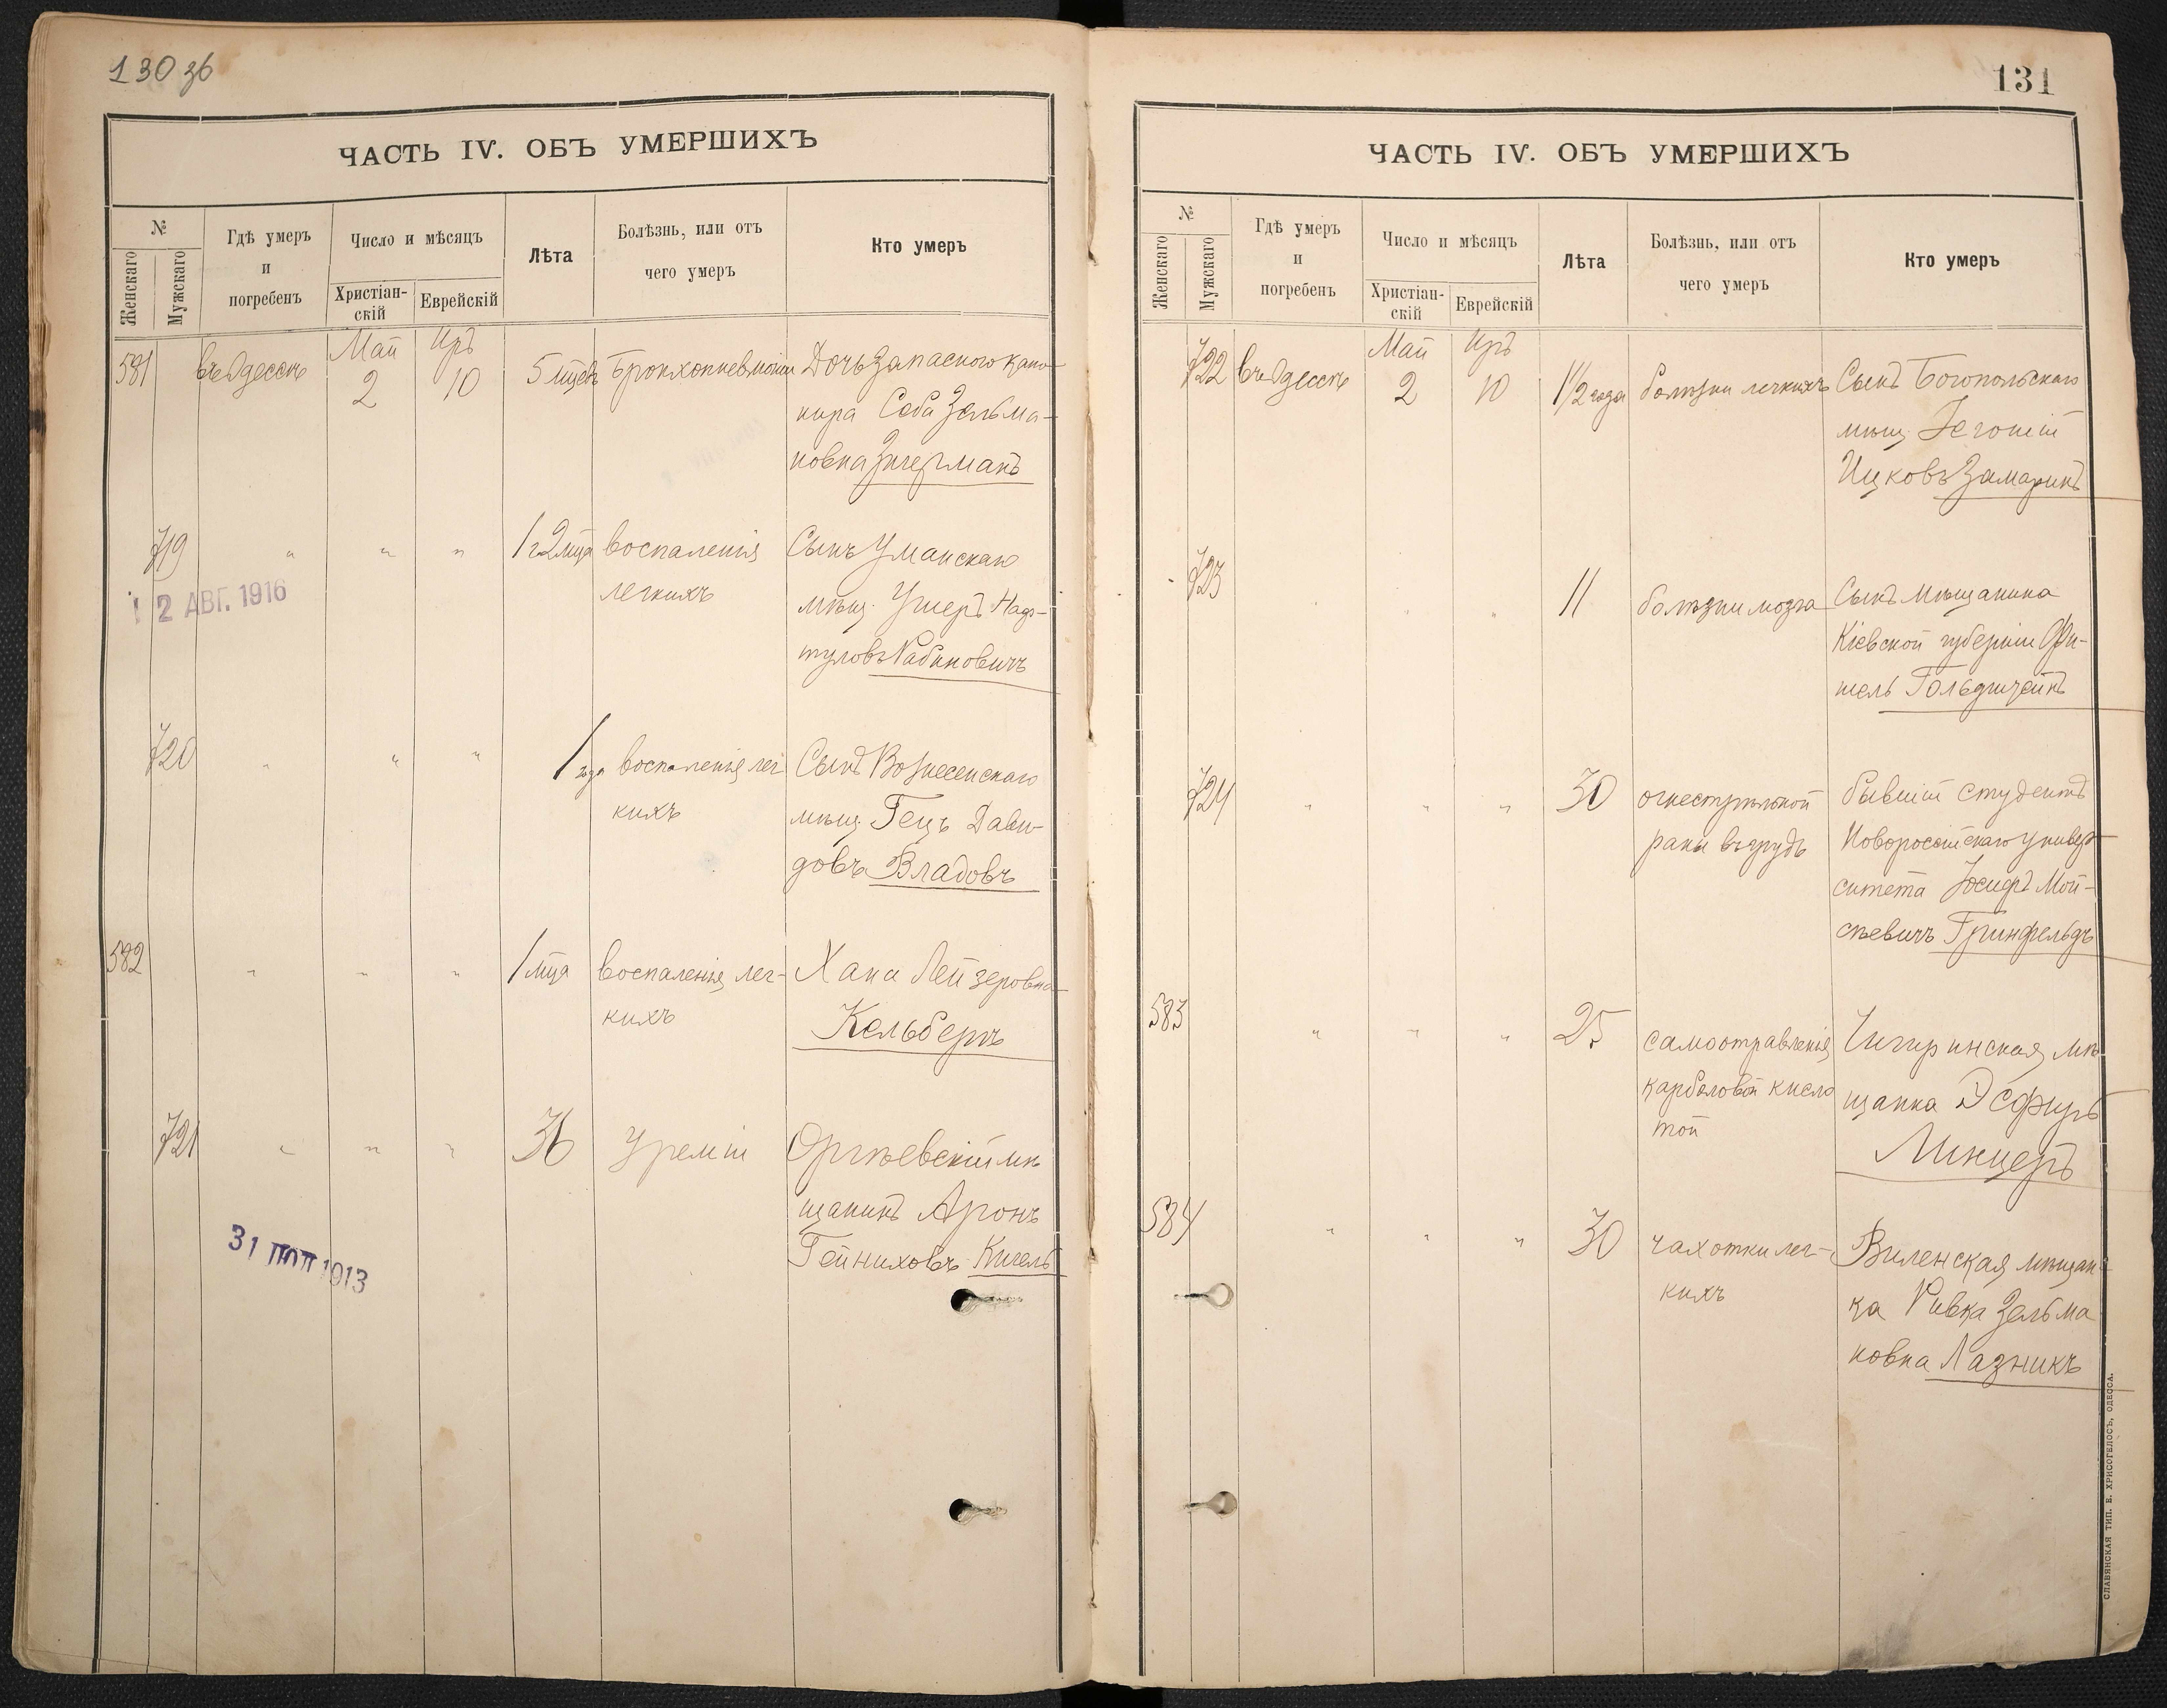 130 зб
ЧАСТЬ IV. ОБЪ УМЕРШИХЪ
№
Женскаго
Мужскаго
Гдѣ умеръ
и
погребенъ
Число и мѣсяцъ
Христіан-
скій
Еврейскій
Лѣта
Болѣзнь, или отъ
чего умеръ
Кто умеръ
Май Иръ
581 въ Одессѣ 2 10 5 мцевъ Бронхопневмоніи Дочь запаснаго кано-
нира Соба Зельма-
новна Зигерманъ
719 " " " 1 г 2 мца воспаленія Сынъ Уманскаго
легкихъ мѣщ. Ушеръ
Рабиновичъ
12 АВГ. 1916
720 " " " 1 года воспаленія лег Сынъ Вознесенскаго
кихъ мѣщ. Гецъ Дави-
довъ Владовъ
582 " " " 1 мца воспаленія лег- Хана Лейзеровна
кихъ Кельбертъ
721 " " " 36 уреміи Оргѣевскій мѣ
щанинъ Аронъ
Гейниховъ Кигель
31 1913
131
ЧАСТЬ IV. ОБЪ УМЕРШИХЪ
№
Женскаго
Мужскаго
Гдѣ умеръ
и
погребенъ
Число и мѣсяцъ
Христіан-
скій
Еврейскій
Лѣта
Болѣзнь, или отъ
чего умеръ
Кто умеръ
Май Иръ
722 въ Одессѣ 2 10 1 1/2 года болѣзни легкихъ Сынъ Богопольскаго
мѣщ.
Ицковъ Замаринъ
723 " " 11 болѣзни мозга Сынъ мѣщанина
Кіевской губерніи Фи-
шель Гольдштейнъ
724 " " " 30 огнестрѣльной бывшій студентъ
раны въ грудь Новороссійскаго универ
ситета Іосифъ Мой-
сѣевичъ Гринфельдъ
583 " " " 25 самоотравленія Чигиринская мѣ
карболовой кисло щанка Эсфирь
той Минцеръ
584 " " " 30 чахотки лег- Виленская мѣщан
кихъ ка Ривка Зельма
новна Лазникъ
СЛАВЯНСКАЯ ТИП. Е. ХРИСОГЕЛОСЪ, ОДЕССА.